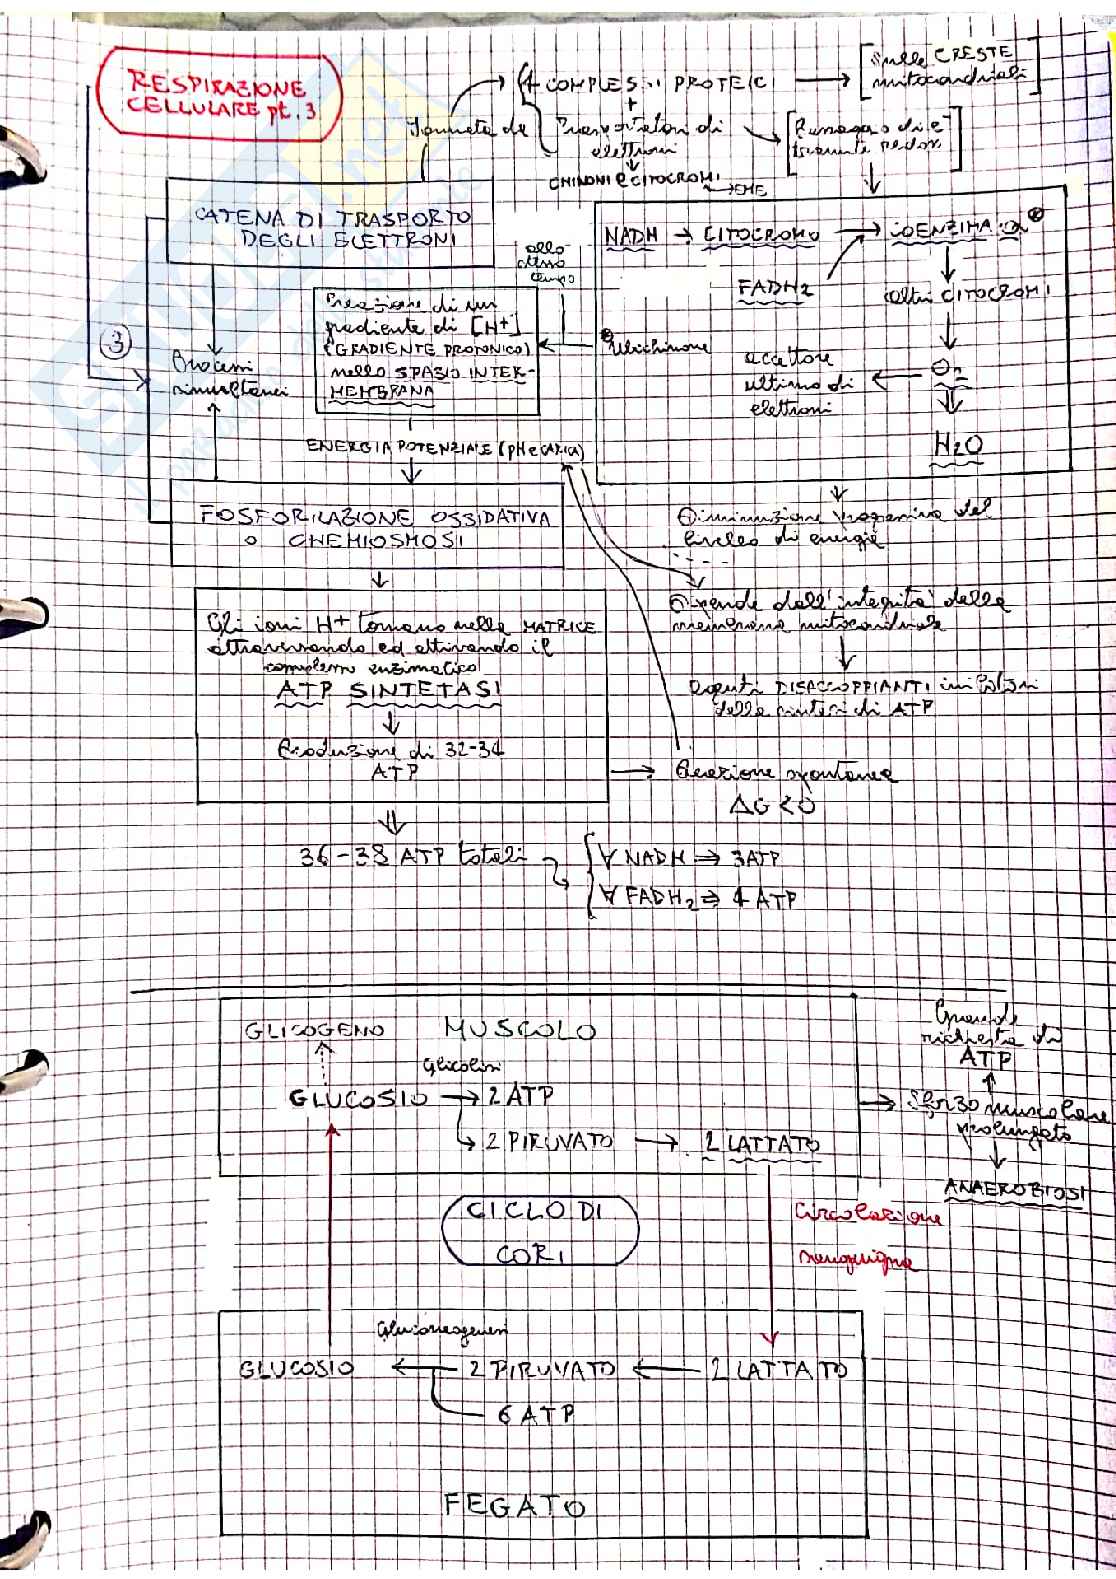 RESPIRAZIONE
CELLULARE pt. 3
4 COMPLESSI PROTEICI
+
Trasportatori di
elettroni
CHINONI e CITOCROMI
EME
Sulle CRESTE
mitocondriali
Passaggio di e-
tramite redox
CATENA DI TRASPORTO
DEGLI ELETTRONI
allo
stesso
tempo
NADH → CITOCROMO → COENZIMA Q
FADH2
altri CITOCROMI
O2
accettore
ultimo di
elettroni
H2O
Ubichinone
Creazione di un
gradiente di [H+]
(GRADIENTE PROTONICO)
nello SPAZIO INTER-
MEMBRANA
3
Processi
simultanei
ENERGIA POTENZIALE (pH e CARICA)
FOSFORILAZIONE OSSIDATIVA
O CHEMIOSMOSI
Diminuzione progressiva del
livello di energie
Dipende dall'integrità della
membrana mitocondriale
Agenti DISACCOPPIANTI inibitori
della sintesi di ATP
Gli ioni H+ tornano nella MATRICE
attraversando ed attivando il
complesso enzimatico
ATP SINTETASI
Produzione di 32-34
ATP
Reazione spontanea
ΔG<0
36-38 ATP totali
∀ NADH ⇒ 3 ATP
∀ FADH2 ⇒ 4 ATP
GLICOGENO MUSCOLO
Glicolisi
GLUCOSIO → 2 ATP
2 PIRUVATO → 2 LATTATO
Grande
richiesta di
ATP
Sforzo muscolare
prolungato
ANAEROBIOSI
CICLO DI
CORI
Circolazione
sanguigna
Gluconeogenesi
GLUCOSIO ← 2 PIRUVATO ← 2 LATTATO
6 ATP
FEGATO